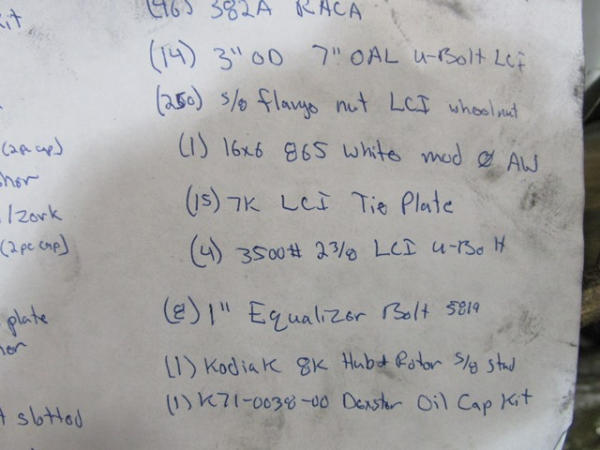 (46) 382A RACA
(14) 3" OD 7" OAL U-Bolt LCI
(250) 5/8 flange nut LCI wheelnut
(1) 16x6 865 White mod Ø AW
(15) 7K LCI Tie Plate
(4) 3500# 2 3/8 LCI U-Bolt
(8) 1" Equalizer Bolt 5819
(1) Kodiak 8K Hub+Rotor 5/8 stud
(1) K71-0038-00 Dexter Oil Cap Kit
(2pc cap)
(2pc cap)
plate
slotted